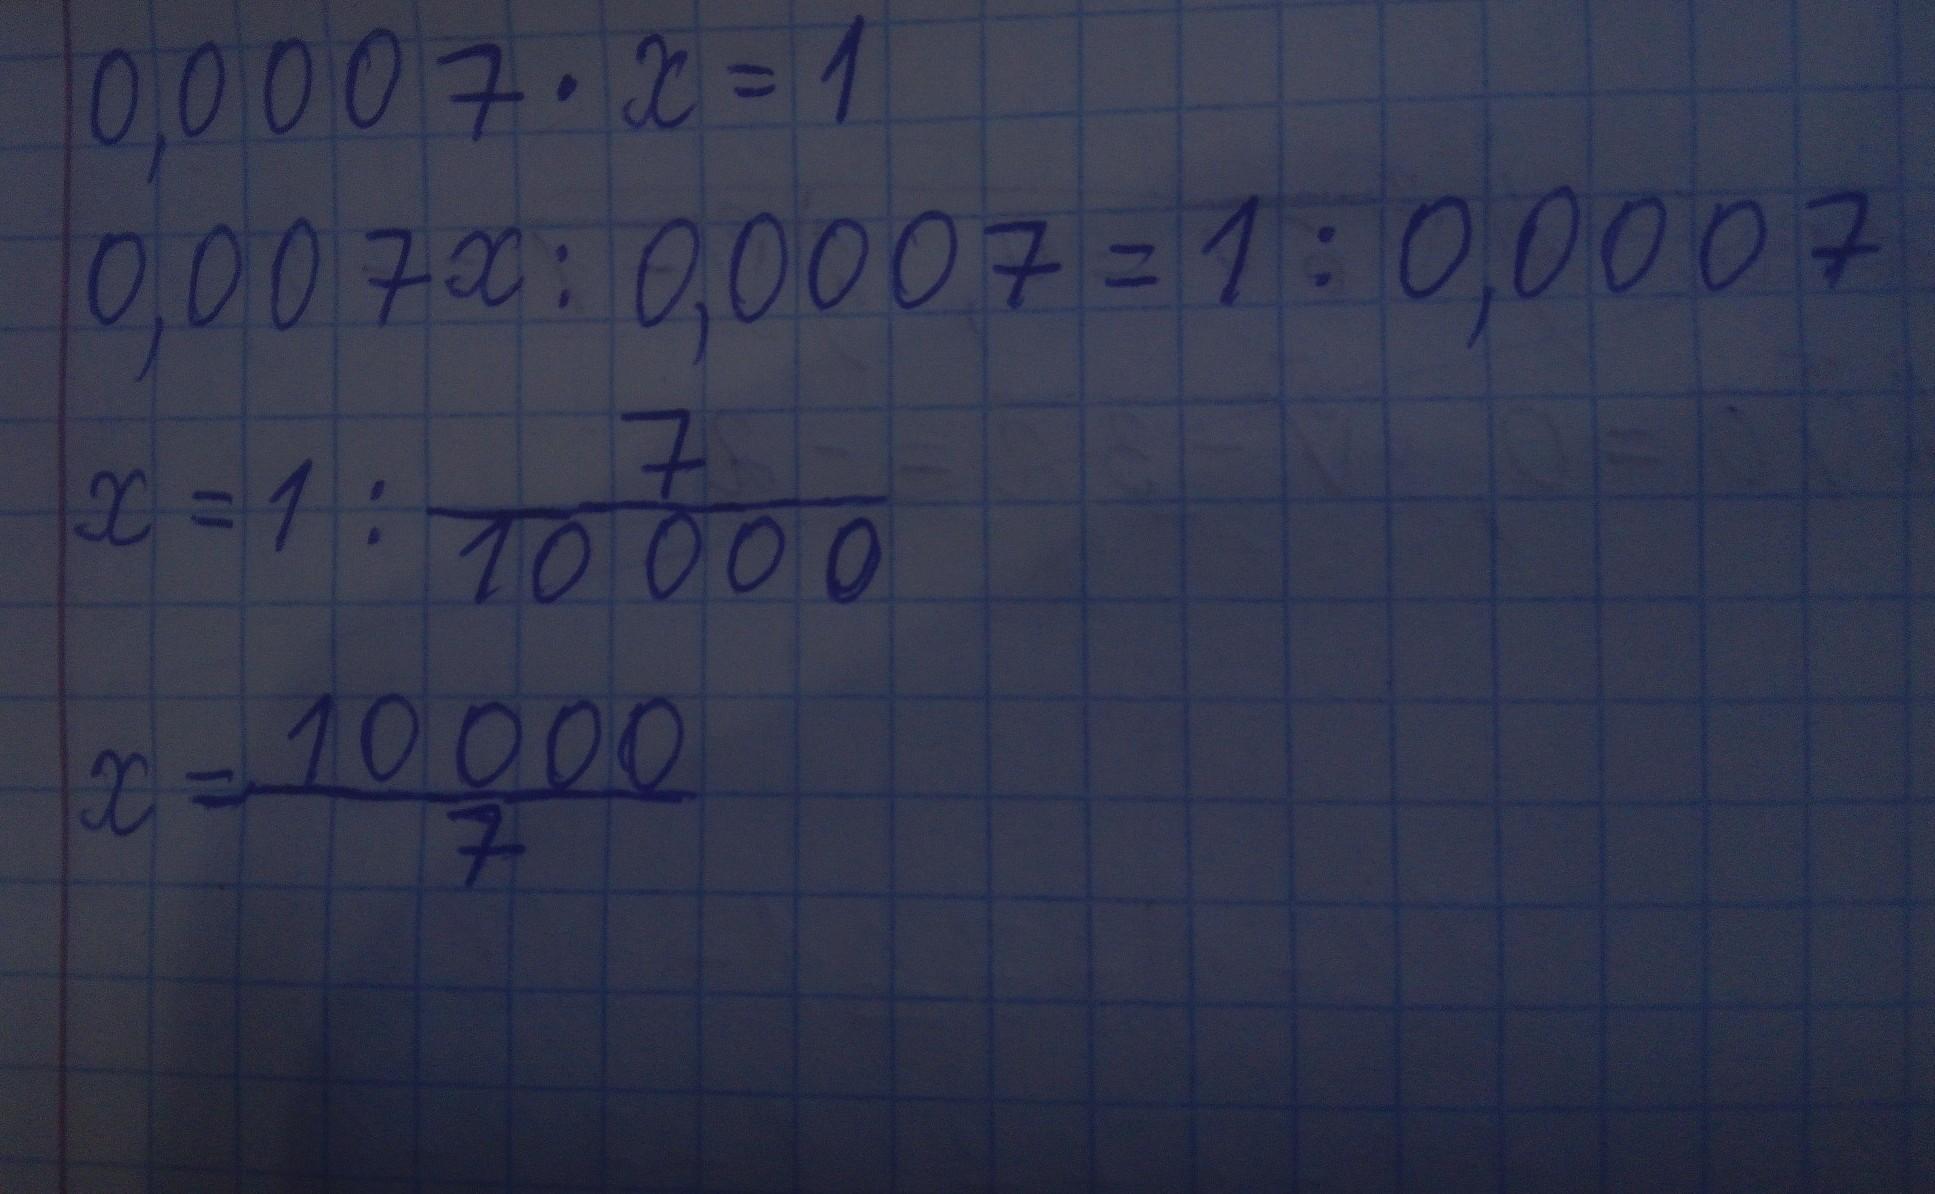 0,0007 · x = 1
0,007x : 0,0007 = 1 : 0,0007
x = 1 : 7/10 000
x = 10 000/7